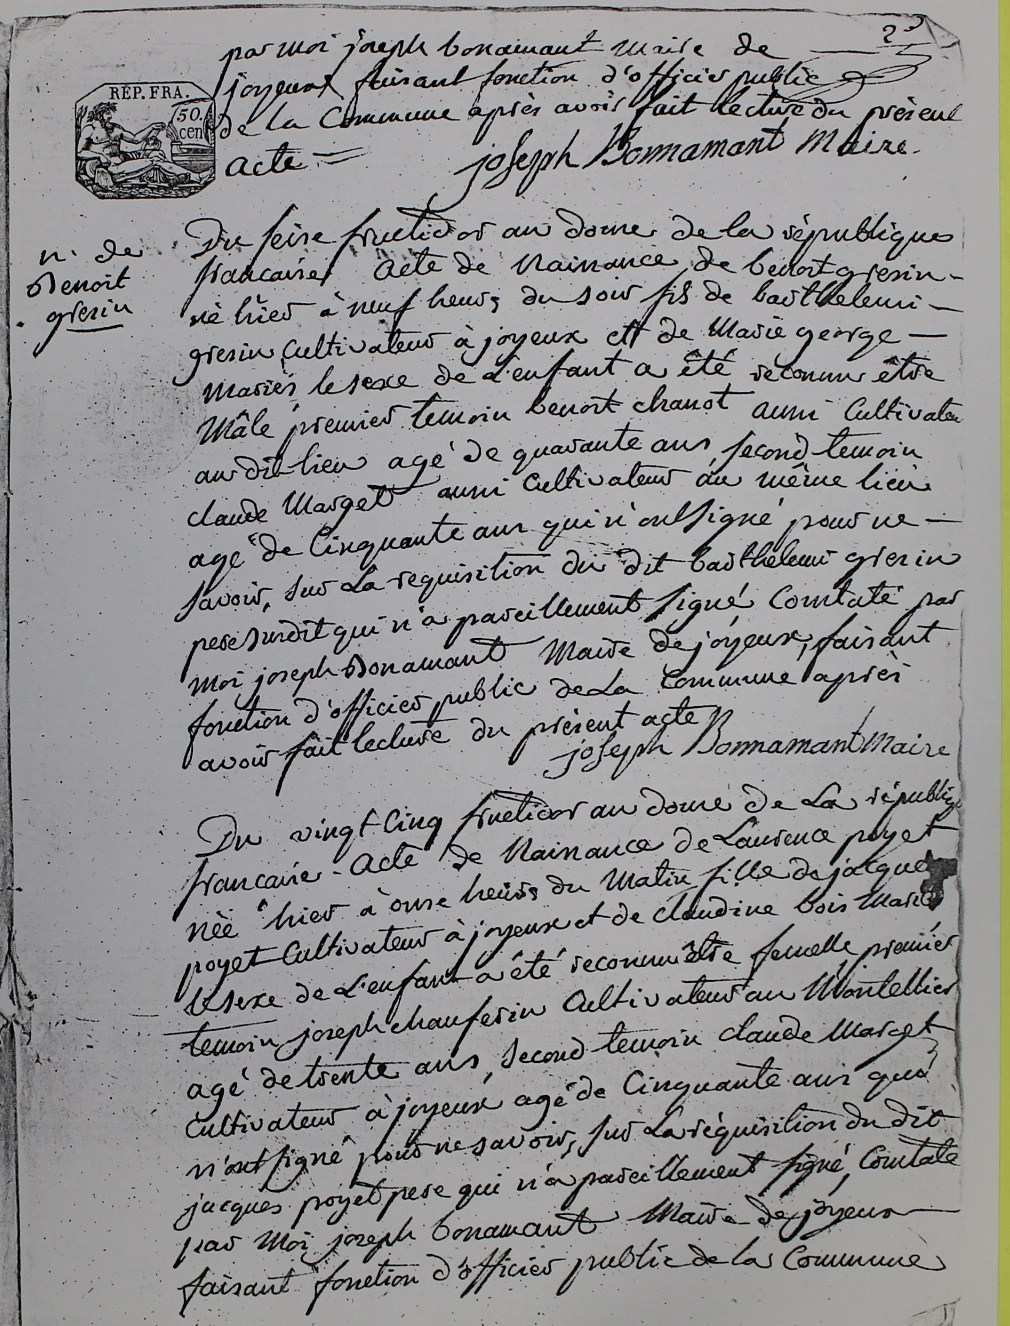 2e
par Moi joseph bonamant Maire de
joyeux faisant fonction d'officier public
de la Commune après avoir fait lecture du présent
acte = joseph Bonnamant Maire.
RÉP. FRA.
50.
cen
n. de
Benoit
gresin
Du seise fructidor an douze de la république
francaise acte de Naissance de benoit gresin -
né hier à neuf heures du soir fils de barthelemi -
gresin Cultivateur à joyeux et de Marie george -
Mariés le sexe de L'enfant a été reconnu être
Mâle premier temoin benoit chanot aussi Cultivateu
au dit lieu agé de quarante ans second temoin
claude Marget aussi Cultivateur au même lieu
agé de Cinquante ans qui n'ont signé pour ne -
savoir, sur la requisition du dit barthelemi gresin
pere susdit qui n'a pareillement signé Constaté par
moi joseph Bonamant Maire de joyeux, faisant
fonction d'officier public de La Commune après
avoir fait lecture du présent acte
joseph Bonnamant Maire
Du vingt Cinq fructidor an douze de La républiq
francaise - acte de Naissance de Laurence poyet
née hier à onse heures du Matin fille de jacque
poyet Cultivateur à joyeux et de claudine bois Mariés
le sexe de L'enfant a été reconnu être femelle, premier
temoin joseph chauferin Cultivateur au Montellier
agé de trente ans, second temoin claude Marget
Cultivateur à joyeux agé de Cinquante ans qui
n'ont signé pour ne savoir, sur La réquisition du dit
jacques poyet pere qui n'a pareillement signé, Constaté
par Moi joseph bonamant Maire de joyeux
faisant fonction d'officier public de la Commune